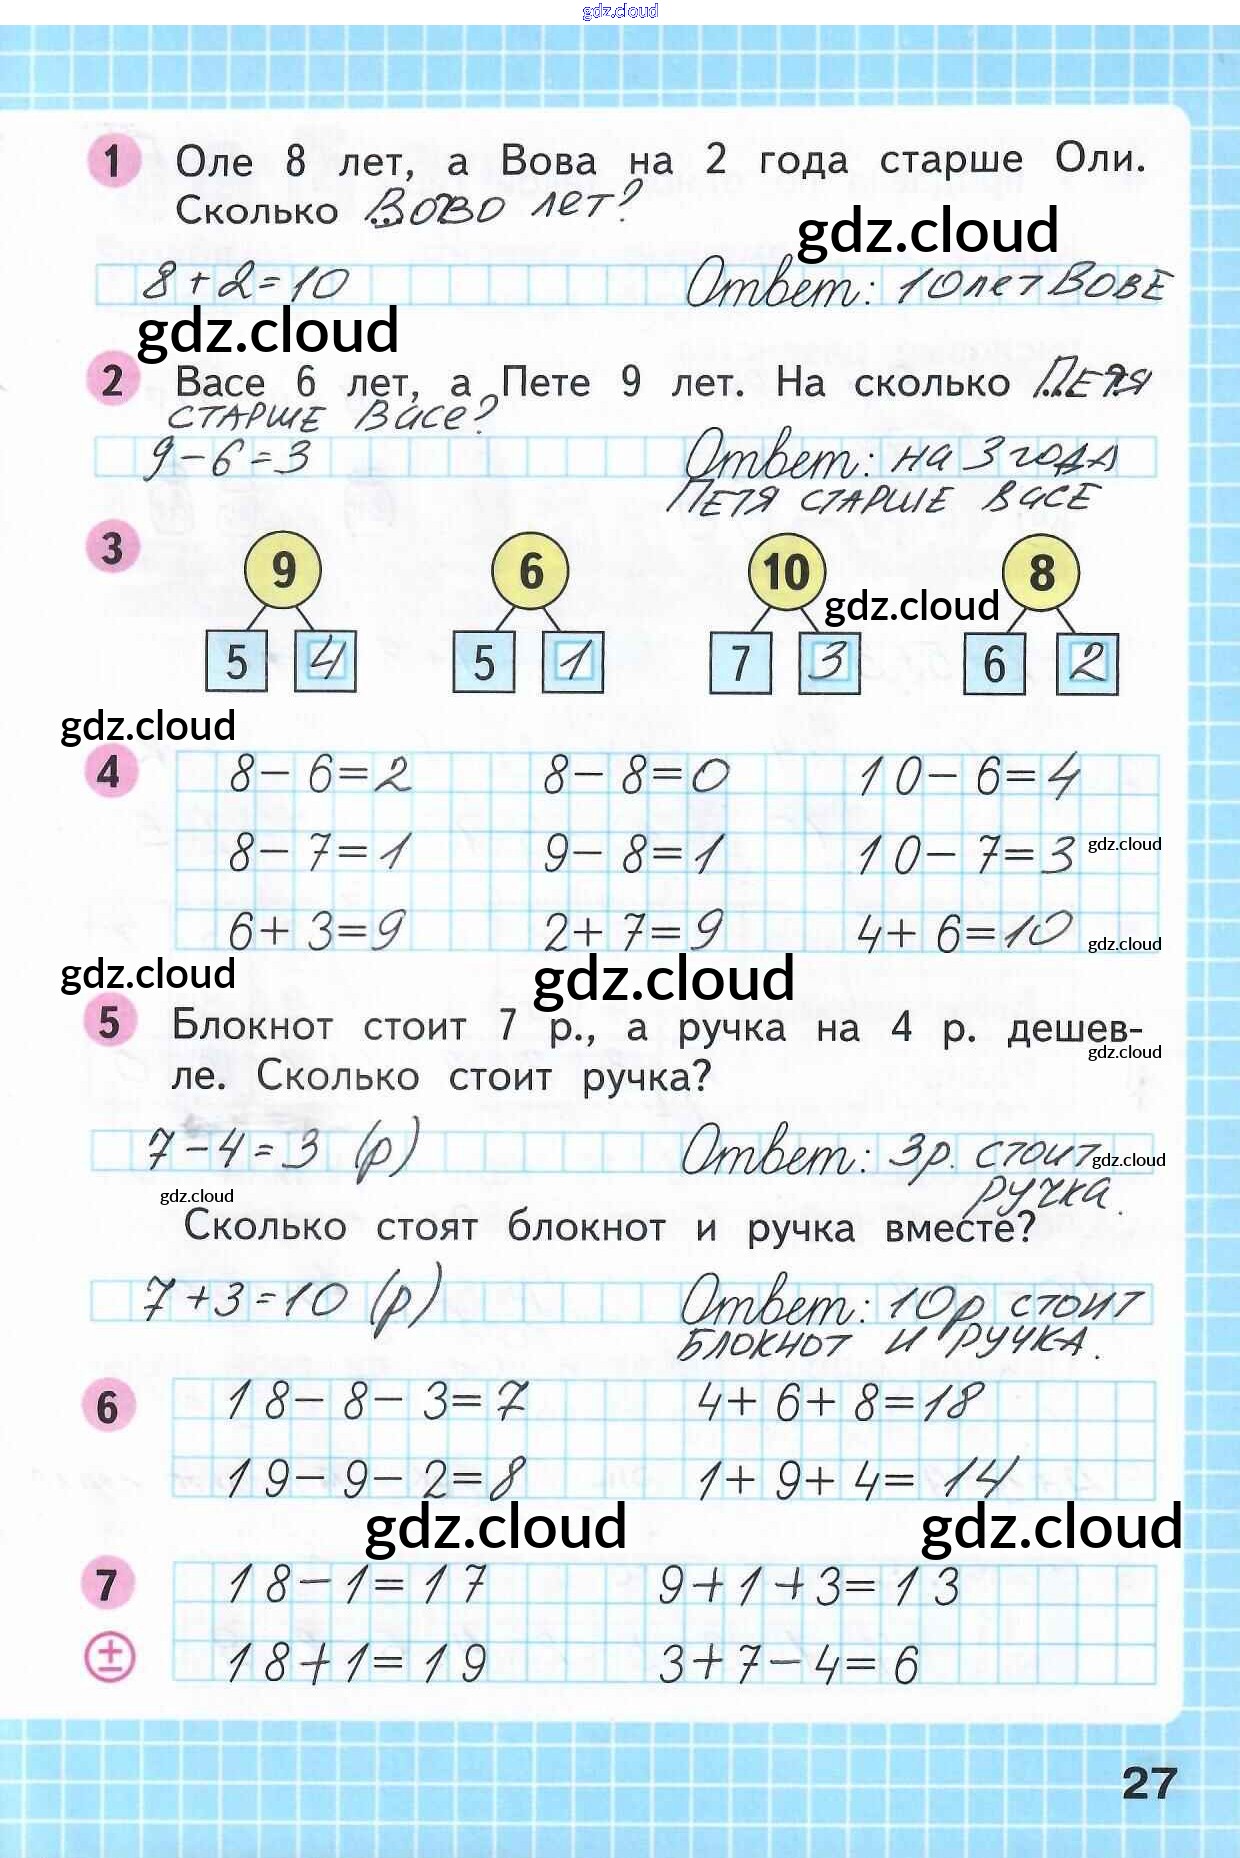 gdz.cloud
1 Оле 8 лет, а Вова на 2 года старше Оли.
Сколько Вово лет?
gdz.cloud
8+2=10 Ответ: 10 лет Вове
gdz.cloud
2 Васе 6 лет, а Пете 9 лет. На сколько Петя
старше Васе?
9-6=3 Ответ: на 3 года
Петя старше Васе
3 9 6 10 8
gdz.cloud
5 4 5 1 7 3 6 2
gdz.cloud
4 8-6=2 8-8=0 10-6=4
8-7=1 9-8=1 10-7=3 gdz.cloud
6+3=9 2+7=9 4+6=10 gdz.cloud
gdz.cloud gdz.cloud
5 Блокнот стоит 7 р., а ручка на 4 р. дешев-
gdz.cloud
ле. Сколько стоит ручка?
7-4=3 (р) Ответ: 3р. стоит gdz.cloud
ручка.
gdz.cloud
Сколько стоят блокнот и ручка вместе?
7+3=10 (р) Ответ: 10р стоит
блокнот и ручка.
6 18-8-3=7 4+6+8=18
19-9-2=8 1+9+4=14
gdz.cloud gdz.cloud
7 18-1=17 9+1+3=13
± 18+1=19 3+7-4=6
27